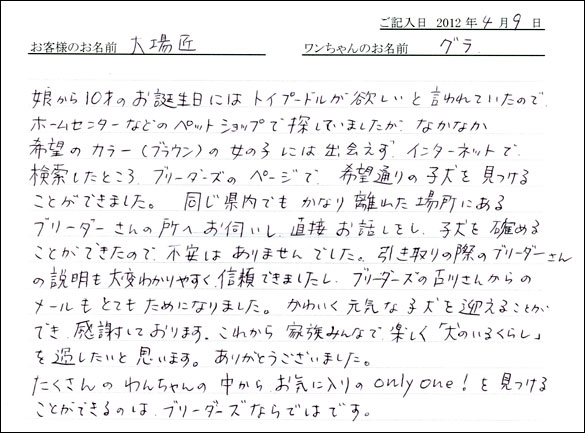 ご記入日 2012年4月9日
お客様のお名前 大場匠 ワンちゃんのお名前 グラ
娘から10才のお誕生日にはトイプードルが欲しいと言われていたので、
ホームセンターなどのペットショップで探していましたが、なかなか
希望のカラー(ブラウン)の女の子には出会えず、インターネットで、
検索したところ、ブリーダーズのページで、希望通りの子犬を見つける
ことができました。同じ県内でもかなり離れた場所にある
ブリーダーさんの所へお伺いし、直接お話しをし、子犬を確める
ことができたので、不安はありませんでした。引き取りの際のブリーダーさん
の説明も大変わかりやすく、信頼できましたし、ブリーダーズの石川さんからの
メールもとてもためになりました。かわいく元気な子犬を迎えることが
でき、感謝しております。これから家族みんなで、楽しく「犬のいるくらし」
を過したいと思います。ありがとうございました。
たくさんのわんちゃんの中からお気に入りのonly one!を見つける
ことができるのは、ブリーダーズならではです。